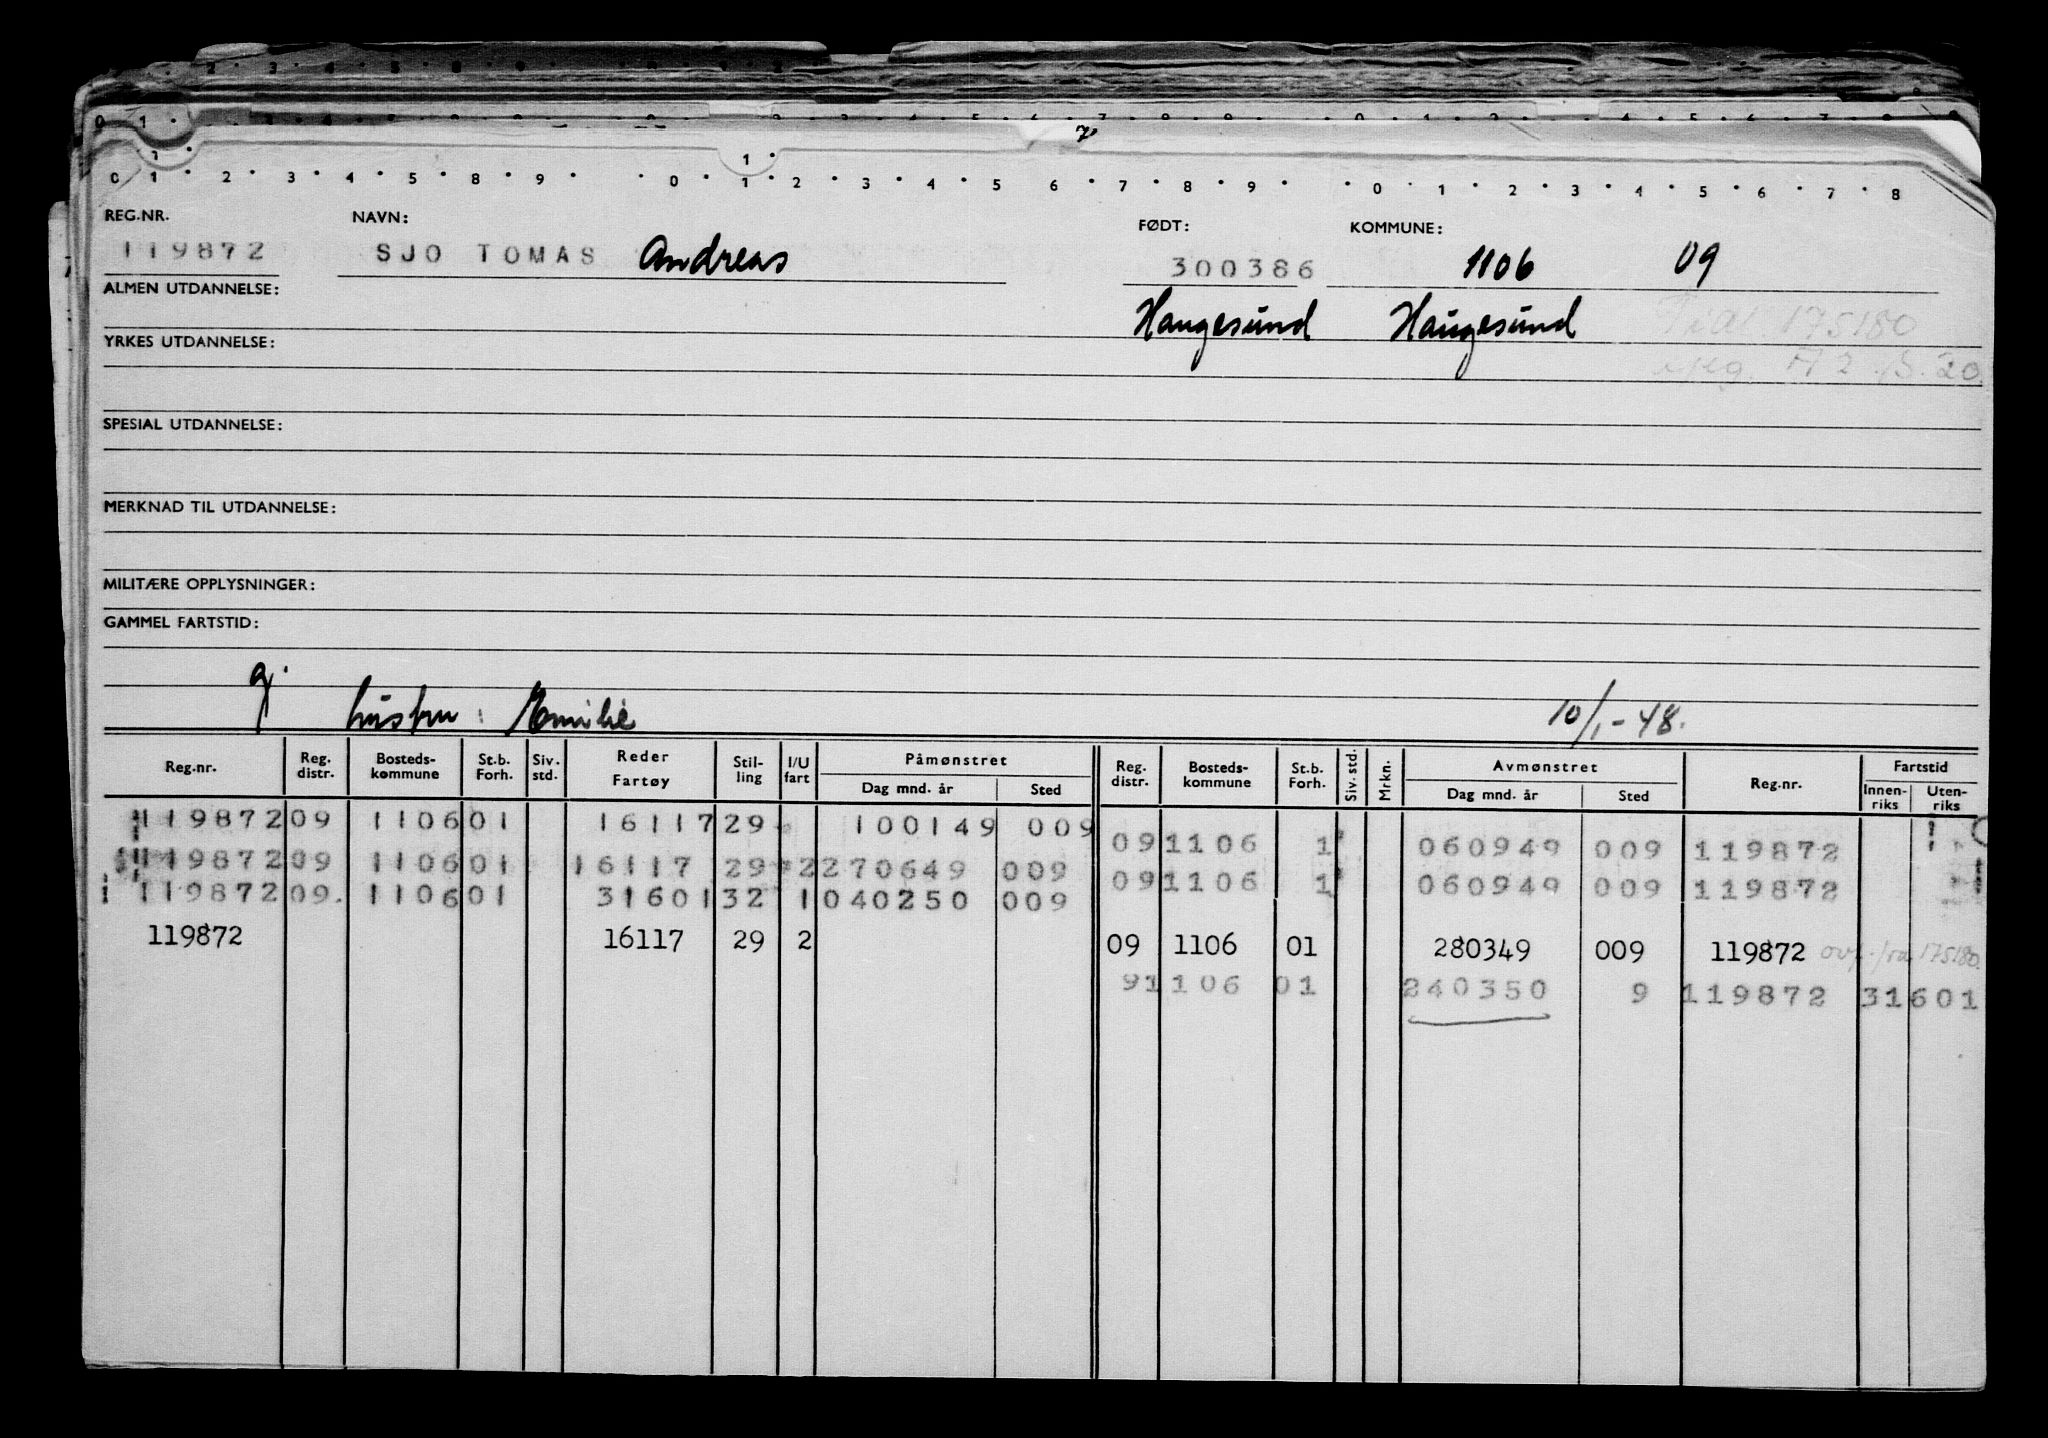 0 1 2 3 4 5 8 9 0 1 2 3 4 5 6 7 8 9 0 1 2 3 4 5 6 7 8
REG.NR. NAVN: FØDT: KOMMUNE:
119872 SJO TOMAS Andreas 300386 1106 09
ALMEN UTDANNELSE:
Haugesund Haugesund Tidl. 175180
YRKES UTDANNELSE:
reg. A 2 S. 20
SPESIAL UTDANNELSE:
MERKNAD TIL UTDANNELSE:
MILITÆRE OPPLYSNINGER:
GAMMEL FARTSTID:
gj.
hustru: Emilie 10/1-48.
Reg.nr. Reg. distr. Bosteds-kommune St.b. Forh. Siv. std. Reder Fartøy Stil-ling I/U fart Påmønstret Dag mnd. år Sted Reg. distr. Bosteds-kommune St.b. Forh. Siv. std. Mrkn. Avmønstret Dag mnd. år Sted Reg.nr. Fartstid Innen-riks Uten-riks
119872 09 1106 01 16117 29 100149 009
091106 1 060949 009 119872
119872 09 1106 01 16117 29 2 270649 009
091106 1 060949 009 119872
119872 09. 1106 01 31601 32 1 040250 009
119872 16117 29 2 09 1106 01 280349 009 119872 175180.
91106 01 240350 9 119872 31601